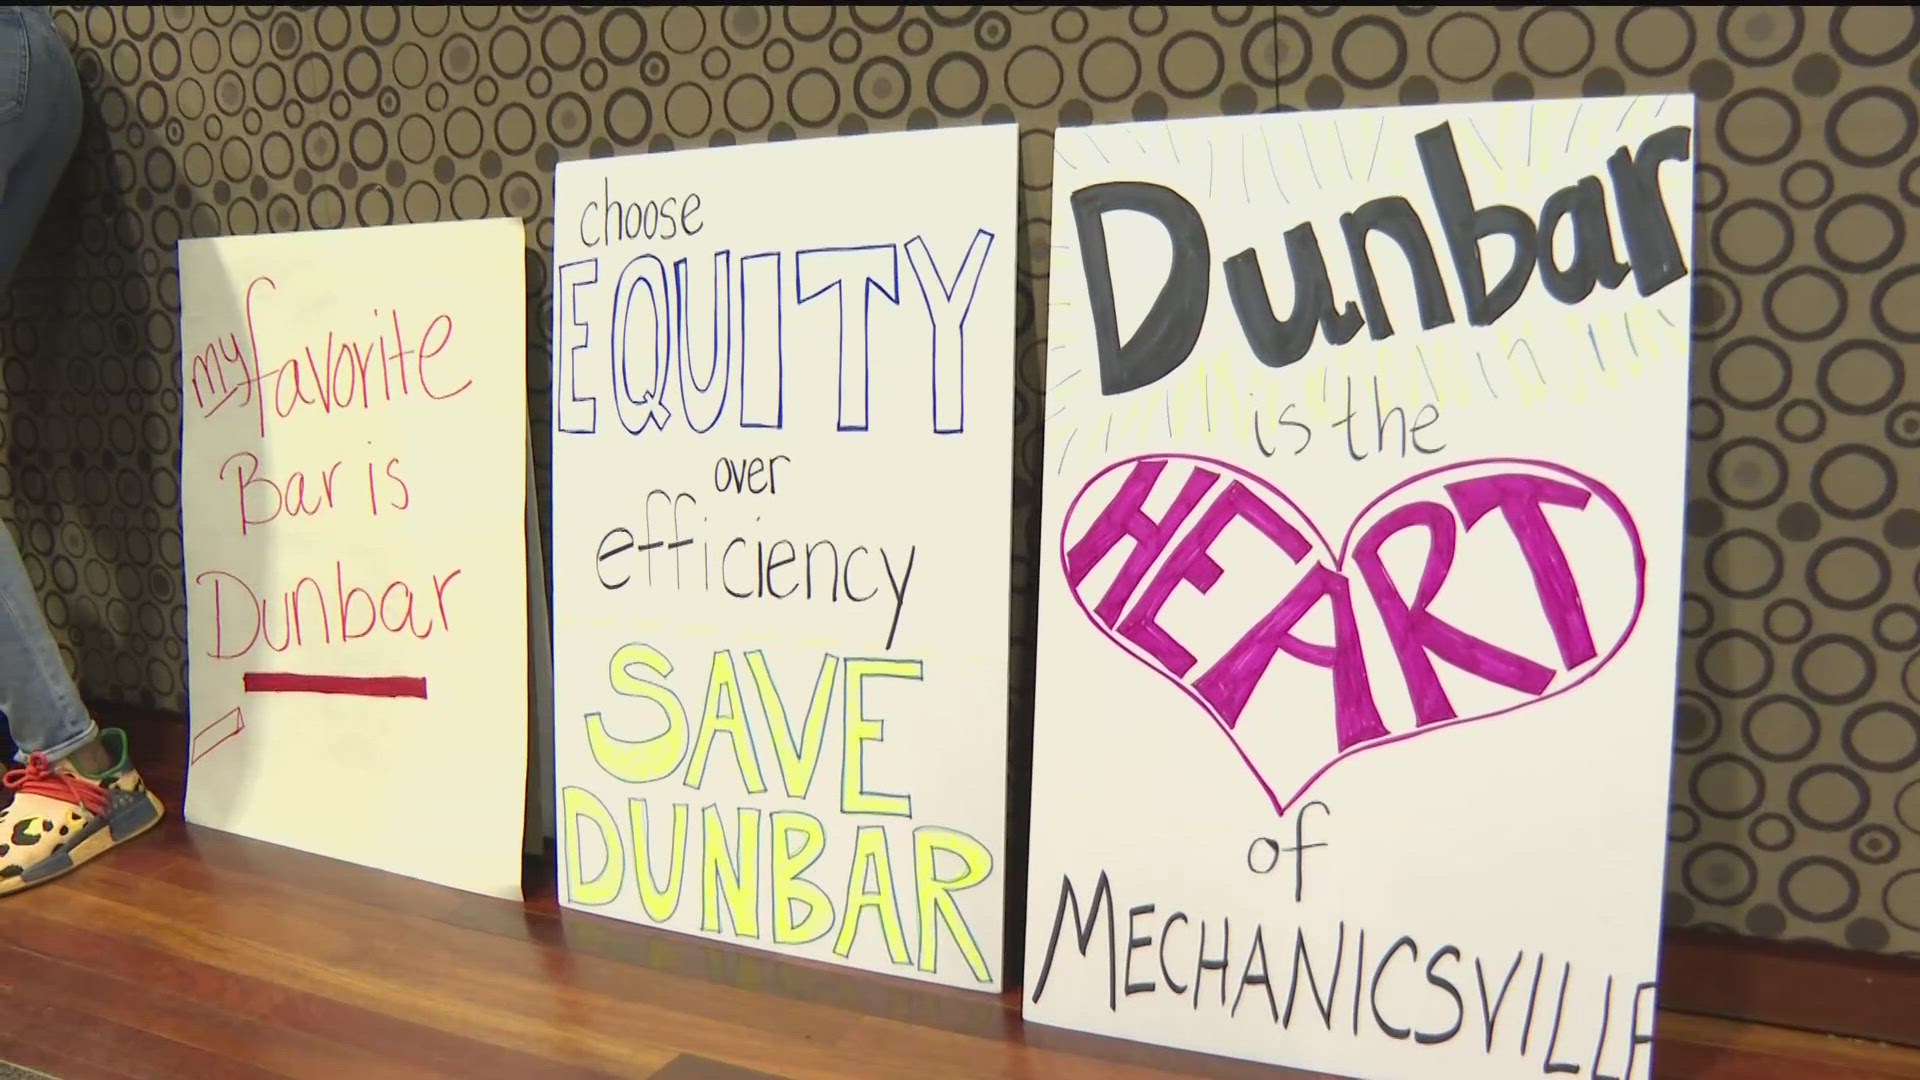 my favorite
Bar is
Dunbar
choose
EQUITY
over
efficiency
SAVE
DUNBAR
Dunbar
is the
HEART
of
MECHANICSVILLE